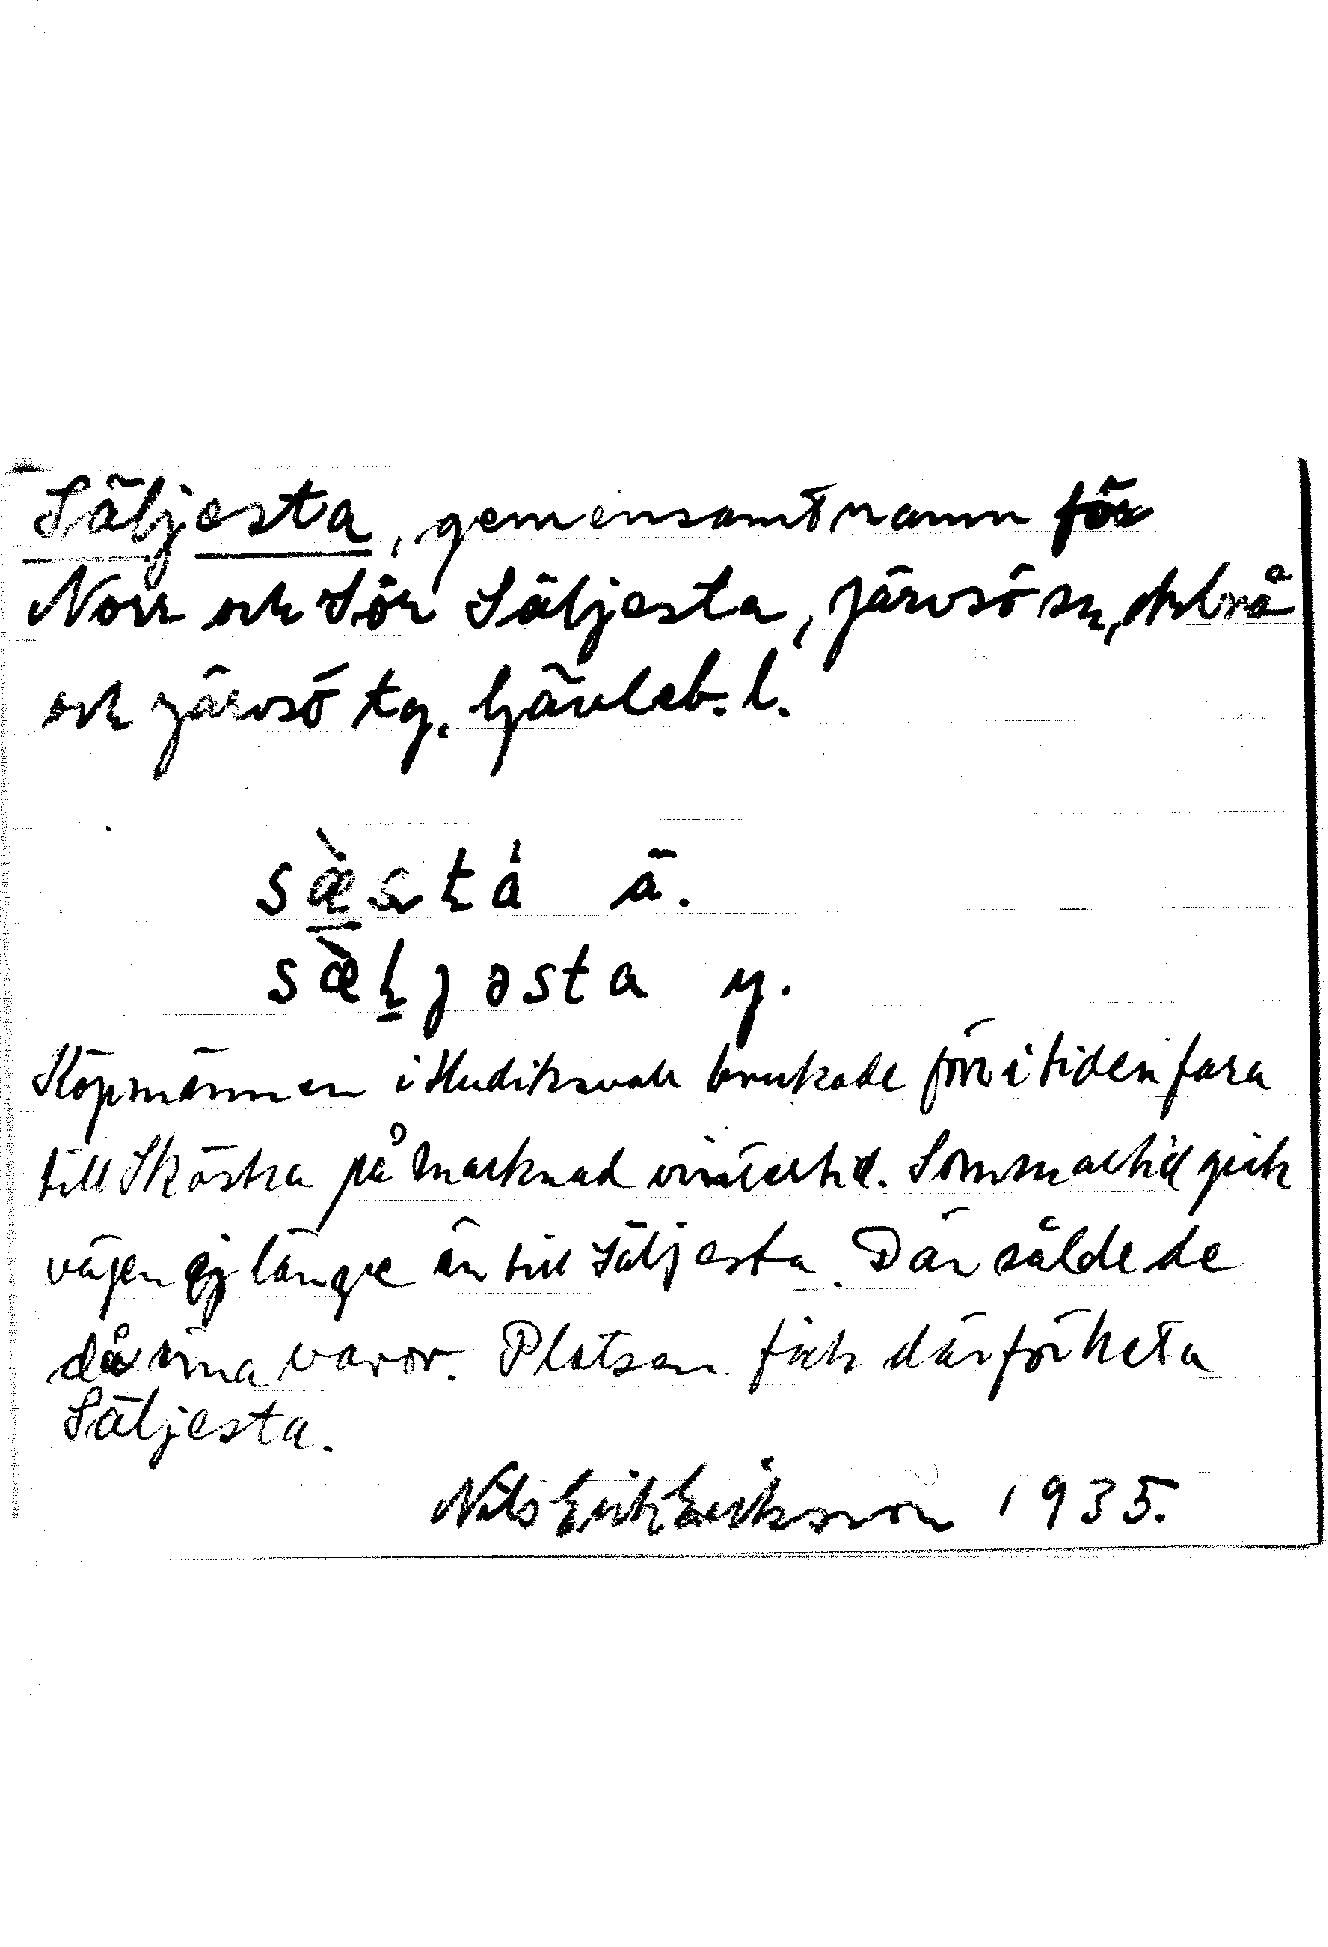 Säljesta, gemensamt namn för
Norr och Sör Säljesta, Järvsö sn,
och Järvsö tg. Gävleb. l.
sæ̀stá ä.
sæ̀ljəsta y.
Köpmännen i Hudiksvall brukade förr i tiden fara
till på marknad vintertid. Sommartid gick
vägen ej längre än till Säljesta. Där sålde de
då sina varor. Platsen fick därför heta
Säljesta.
Nils Erik Eriksson 1935.